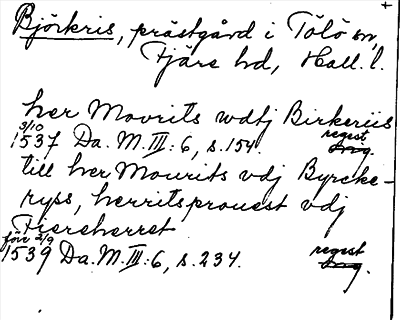 Björkris, prästgård i Tölö sn,
Fjäre hd, Hall. l.
her Mavrits wdtj Birkeriis
3/10 1537 Da. M. III: 6, s. 154. regest
till her Mourits vdj Byrcke-
ryss, herritsprouest vdj
Fiereherret
före 2/9 1539 Da. M. III: 6, s. 234. regest